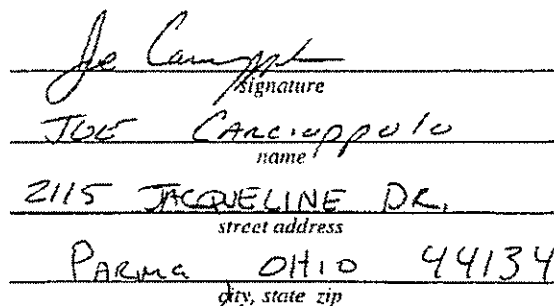 Joe
signature
JOE CARCIOPPOLO
name
2115 JACQUELINE DR.
street address
PARMA OHIO 44134
city, state zip